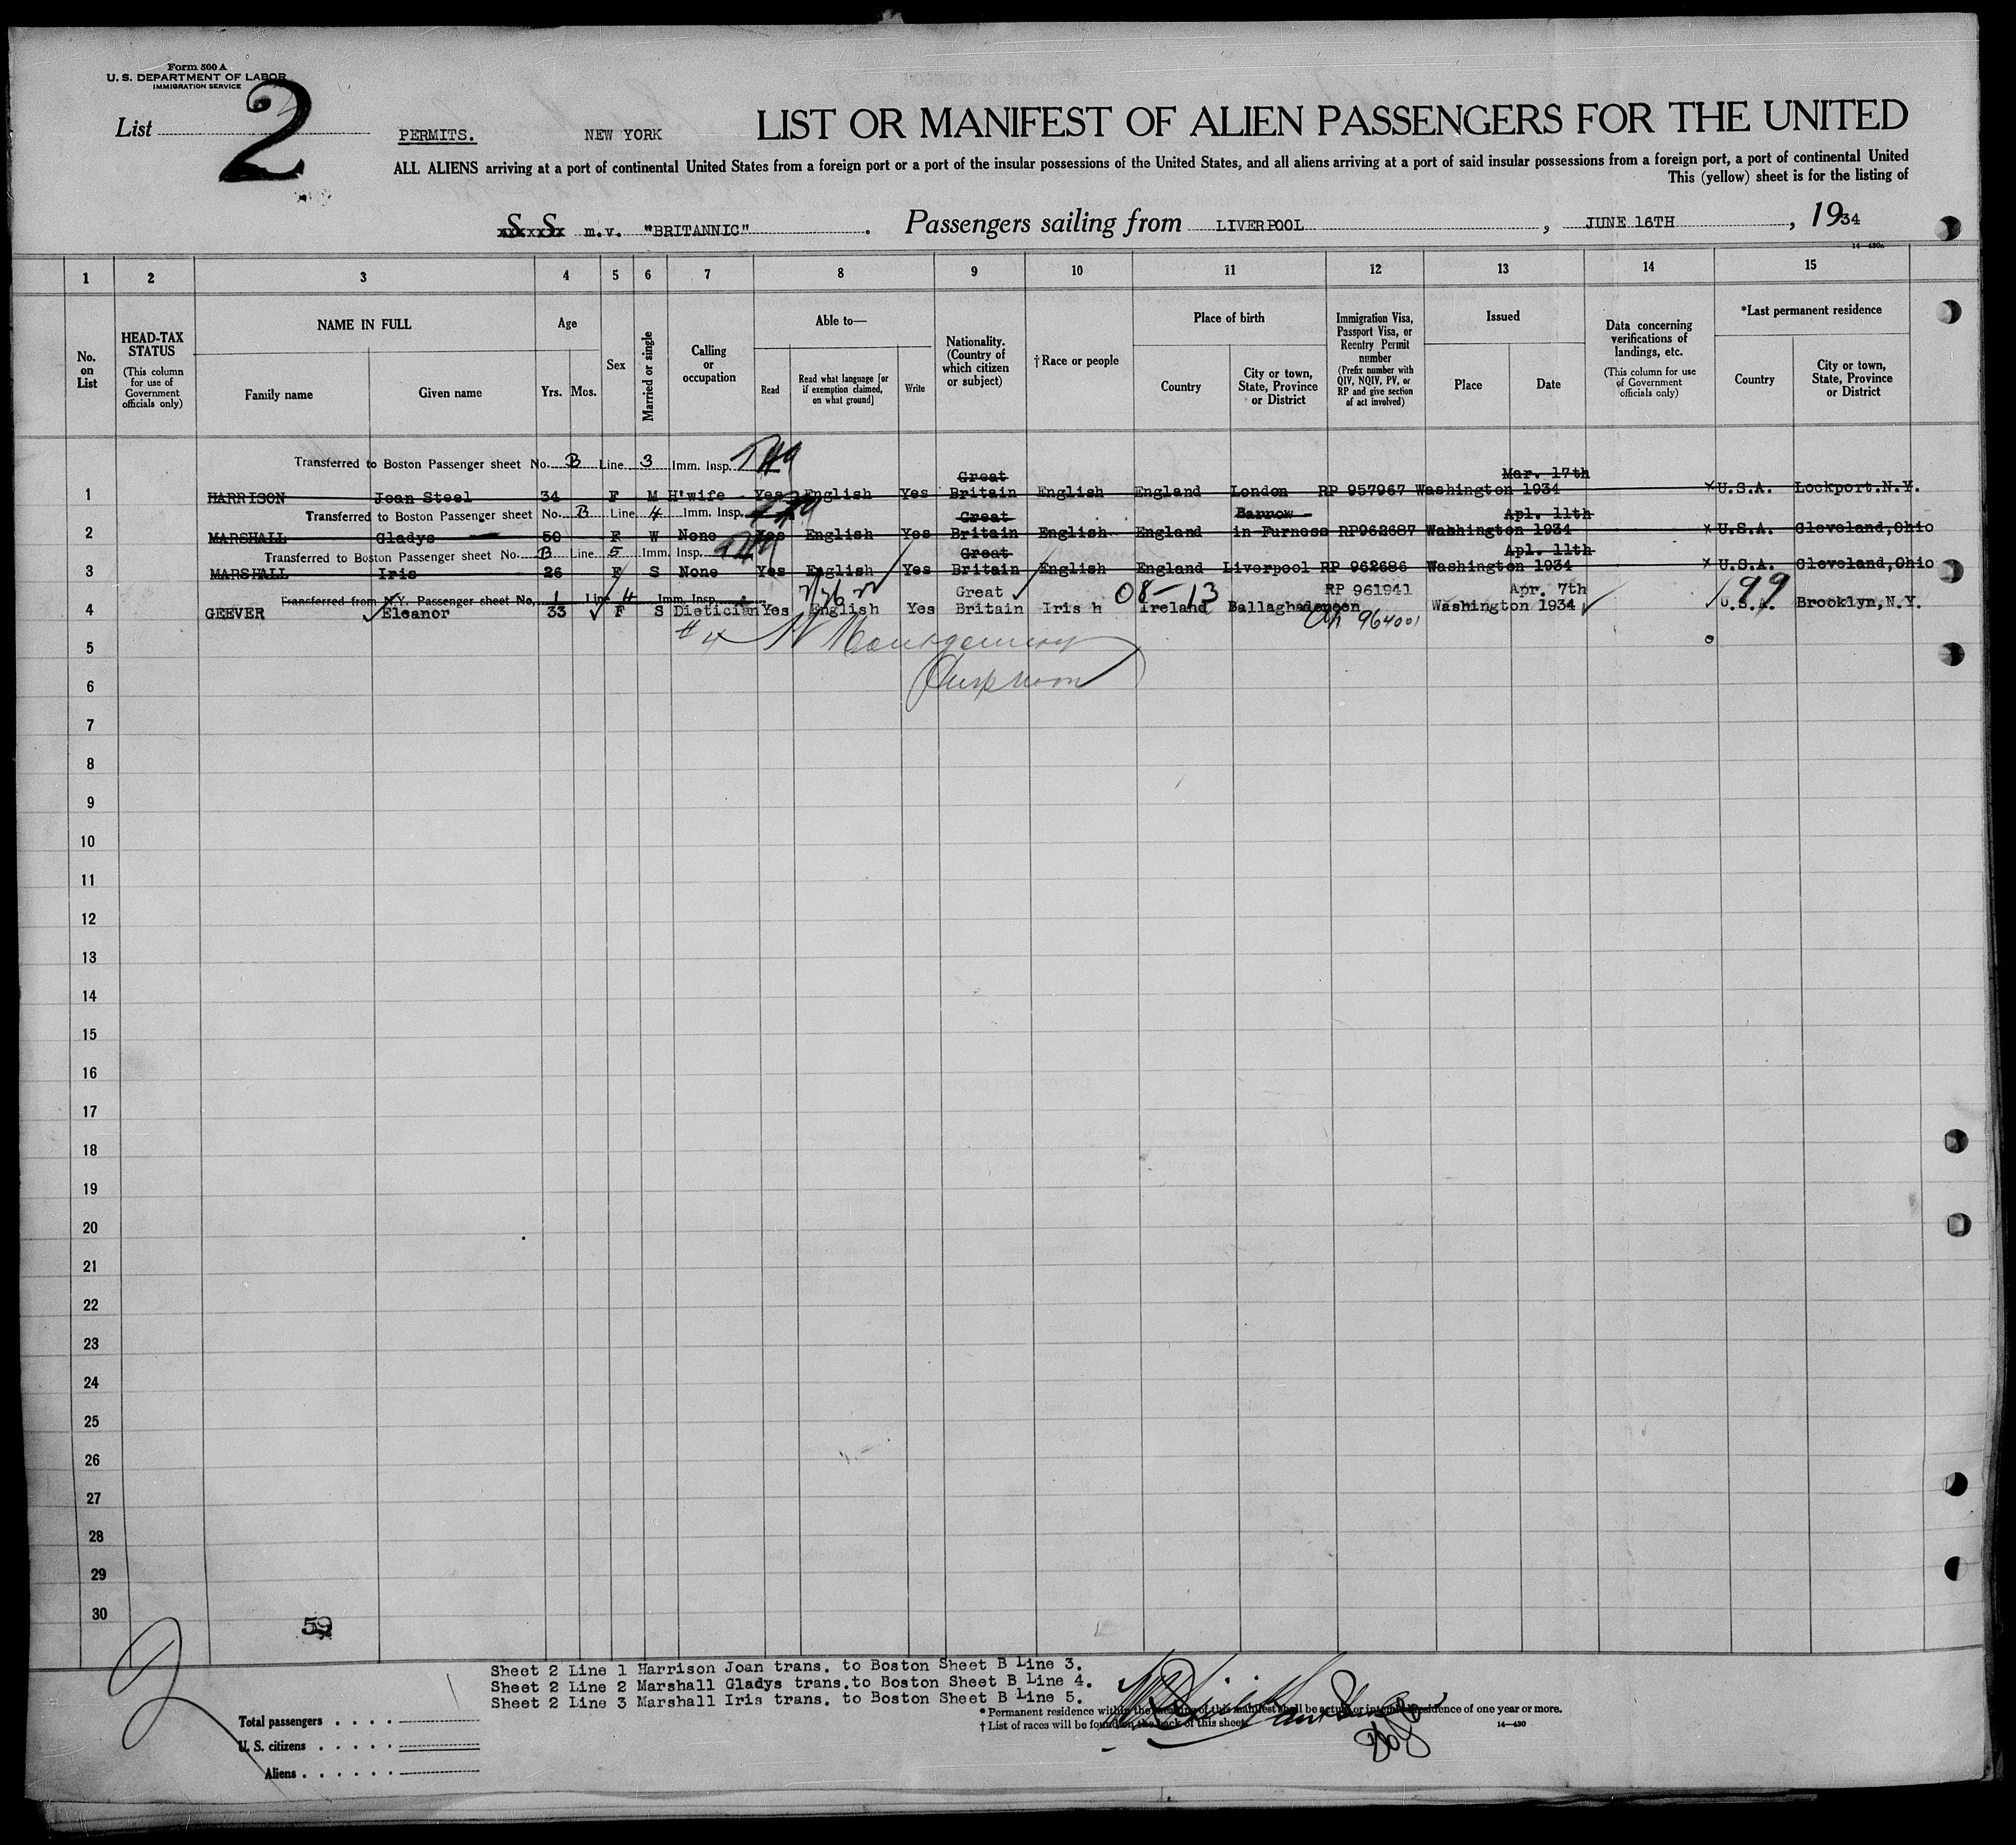 Form 500 A
U. S. DEPARTMENT OF LABOR
IMMIGRATION SERVICE
List 2
PERMITS. NEW YORK LIST OR MANIFEST OF ALIEN PASSENGERS FOR THE UNITED
ALL ALIENS arriving at a port of continental United States from a foreign port or a port of the insular possessions of the United States, and all aliens arriving at a port of said insular possessions from a foreign port, a port of continental United
This (yellow) sheet is for the listing of
S. S. m.v. "BRITANNIC" . Passengers sailing from LIVERPOOL , JUNE 16TH , 1934
14—430a
1 2 3 4 5 6 7 8 9 10 11 12 13 14 15
No. on List
HEAD-TAX STATUS (This column for use of Government officials only)
NAME IN FULL
Family name Given name
Age
Yrs. Mos.
Sex
Married or single
Calling or occupation
Able to—
Read Read what language [or if exemption claimed, on what ground] Write
Nationality. (Country of which citizen or subject)
† Race or people
Place of birth
Country City or town, State, Province or District
Immigration Visa, Passport Visa, or Reentry Permit number (Prefix number with QIV, NQIV, PV, or RP and give section of act involved)
Issued
Place Date
Data concerning verifications of landings, etc. (This column for use of Government officials only)
*Last permanent residence
Country City or town, State, Province or District
Transferred to Boston Passenger sheet No. B Line 3 Imm. Insp.
Great Mar. 17th
1 HARRISON Joan Steel 34 F M H'wife Yes English Yes Britain English England London RP 957967 Washington 1934 x U.S.A. Lockport.N.Y.
Transferred to Boston Passenger sheet No. B Line 4 Imm. Insp.
Great Barrow Apl. 11th
2 MARSHALL Gladys 50 F W None Yes English Yes Britain English England in Furness RP962687 Washington 1934 x U.S.A. Cleveland,Ohio
Transferred to Boston Passenger sheet No. B Line 5 Imm. Insp.
Great Apl. 11th
3 MARSHALL Iris 26 F S None Yes English Yes Britain English England Liverpool RP 962686 Washington 1934 x U.S.A. Cleveland,Ohio
Transferred from N.Y. Passenger sheet No. 1 Line 4 Imm. Insp.
Great 08-13 RP 961941 Apr. 7th 99
4 GEEVER Eleanor 33 F S Dietician Yes English Yes Britain Iris h Ireland Washington 1934 U.S.A. Brooklyn,N.Y.
964001
#4 Montgomery
5
6
7
8
9
10
11
12
13
14
15
16
17
18
19
20
21
22
23
24
25
26
27
28
29
30
59
2
Sheet 2 Line 1 Harrison Joan trans. to Boston Sheet B Line 3.
Sheet 2 Line 2 Marshall Gladys trans.to Boston Sheet B Line 4.
Sheet 2 Line 3 Marshall Iris trans. to Boston Sheet B Line 5.
* Permanent residence within the meaning of this manifest shall be actual or intended residence of one year or more.
† List of races will be found on the back of this sheet.
14—430
Total passengers . . . .
U. S. citizens . . . . .
Aliens . . . . . .